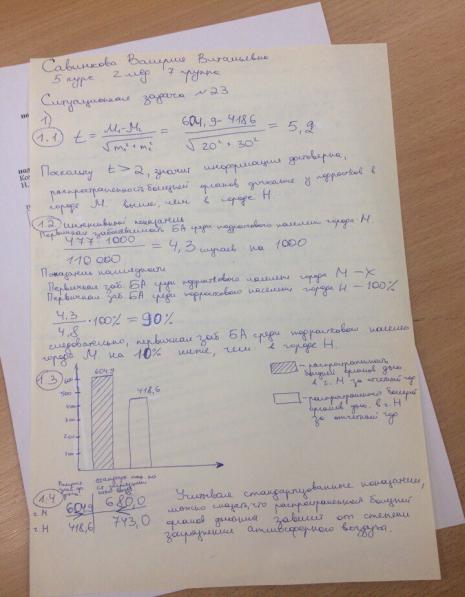 Савинкова Валерия Витальевна
5 курс 2 мдф 7 группа
Ситуационная задача № 23
1)
1.1 t = M₁-M₂ / √m₁²+m₂² = 604,9-418,6 / √20²+30² = 5,2
Поскольку t > 2, значит информация достоверна,
распространенность болезней органов дыхания у подростков в
городе М. выше, чем в городе Н.
1.2 интенсивный показатель
Первичная заболеваемость БА среди подросткового населен. города М.
477·1000 / 110 000 = 4,3 случаев на 1000
Показатель наглядности
Первичная заб. БА среди подросткового населен. города М – X
Первичная заб. БА среди подросткового населен. города Н – 100%
4,3 / 4,8 · 100% = 90%
следовательно, первичная заб. БА среди подростков населен
города М. на 10% ниже, чем в городе Н.
1.3
604,9
418,6
- распространенность
болезней органов дых.
в г. М за отчетный год
- распространен. болезней
органов дых. в г. Н
за отчетный год
1.4
г. М 604,9 680,0
г. Н 418,6 743,0
Учитывая стандартизованные показатели,
можно сказать, что распространенность болезней
органов дыхания зависит от степени
загрязнения атмосферного воздуха.